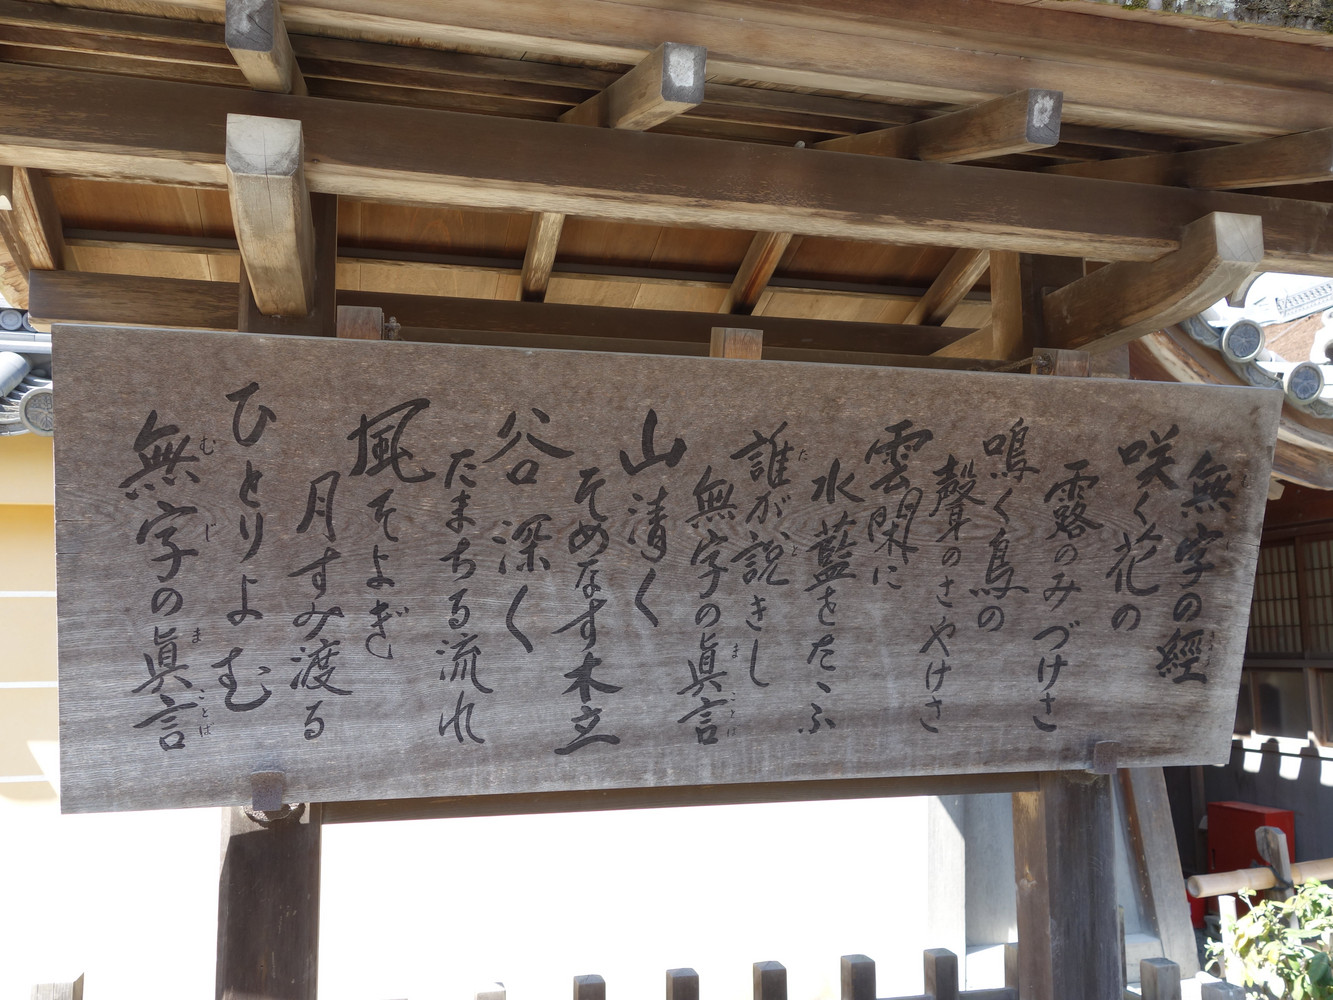 無字の經
咲く花の
露のみづけさ
鳴く鳥の
聲のさやけさ
雲閑に
水藍をたゝふ
誰が説きし
無字の眞言
山清く
そめなす木立
谷深く
たまちる流れ
風そよぎ
月すみ渡る
ひとりよむ
無字の眞言